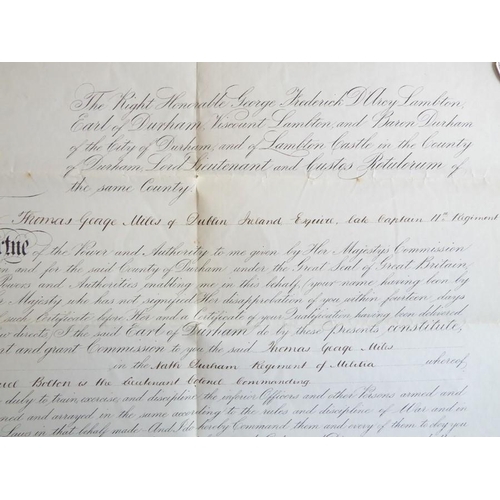 The Right Honorable George Frederick D'Arcy Lambton,
Earl of Durham, Viscount Lambton, and Baron Durham
of the City of Durham, and of Lambton Castle in the County
of Durham, Lord Lieutenant and Custos Rotulorum of
the same County.
Thomas George Miles of Dublin Ireland Esquire, late Captain 11th Regiment
rtue of the Power and Authority to me given by Her Majestys Commission
n and for the said County of Durham under the Great Seal of Great Britain,
Powers and Authorities enabling me in this behalf (your name having been by
r Majesty who has not signified Her disapprobation of you within fourteen days
such Certificate before Her and a Certificate of your Qualification having been delivered
w directs,) I the said Earl of Durham do by these presents constitute,
nt and grant Commission to you the said Thomas George Miles
in the North Durham Regiment of Militia whereof,
Bolton is the Lieutenant Colonel Commanding
duly to train, exercise, and discipline the inferior Officers and other Persons armed and
ned and arrayed in the same according to the rules and discipline of War and on
Laws in that behalf made And I do hereby Command them and every of them to obey you